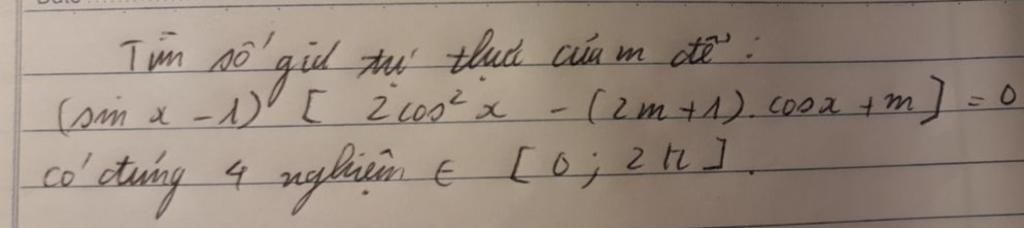 Tìm số giá trị thực của m để :
(sin x - 1) [ 2cos² x - (2m + 1). cosx + m ] = 0
có đúng 4 nghiệm ∈ [ 0 ; 2π ].